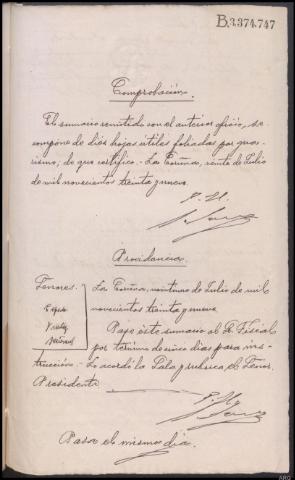 B.3.374.747
Comprobación.
El sumario remitido con el anterior oficio, se
compone de diez hojas útiles foliadas por gua-
rismo; de que certifico.- La Coruña, veinte de Julio
de mil novecientos treinta y nueve.
Providencia
Señores: La Coruña, veintiuno de Julio de mil
novecientos treinta y nueve.
Pase este sumario al Sr. Fiscal
por termino de cinco dias para ins-
trucción.- Lo acordó la Sala y rubrica el Señor
Presidente
Pasa el mismo dia.
ARG